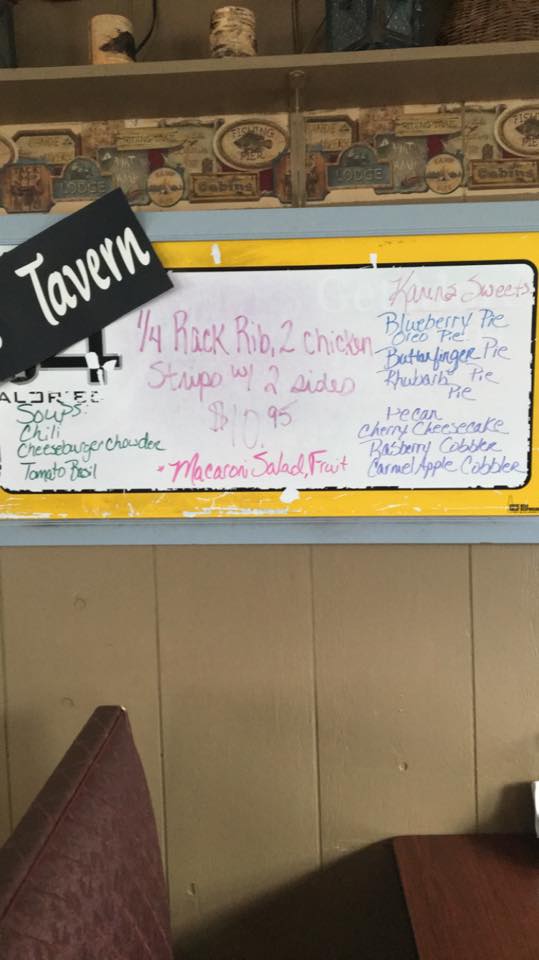 FISHING
PIER
LODGE
Cabins
Tavern
64
CALORIES
Soups:
Chili
Cheeseburger Chowder
Tomato Basil
1/4 Rack Rib, 2 chicken
Strips w/ 2 sides
$10.95
*Macaroni Salad, Fruit
Karen's Sweets
Blueberry Pie
Oreo Pie
Butterfinger Pie
Rhubarb Pie
Pie
Pecan
Cherry Cheesecake
Rasberry Cobbler
Carmel Apple Cobbler